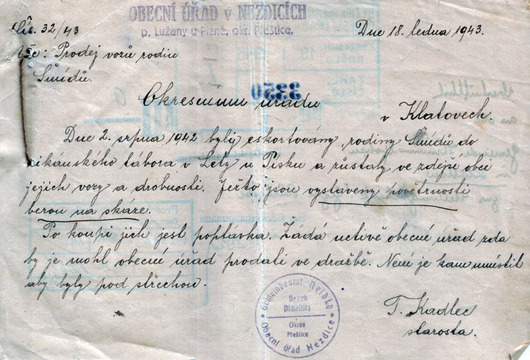 OBECNÍ ÚŘAD v NEZDICÍCH
p. Lužany u Přešt., okr. Přeštice.
Čís. 32/43
Dne 18. ledna 1943.
Věc: Prodej vozů rodin
Šmídů.
3320
Okresnímu úřadu
v Klatovech.
Dne 2. srpna 1942 byly eskortovány rodiny Šmídů do
cikánského tábora v Lety u Písku a zůstaly ve zdejší obci
jejich vozy a drobnosti. Ježto jsou vystaveny povětrnosti
berou na skáze.
Po koupi jich jest poptávka. Žádá uctivě obecné úřad zda
by je mohl obecné úřad prodati ve dražbě. Není je kam umístiti
aby byly pod střechou.
T. Kadlec
starosta.
Obecní úřad Nezdice